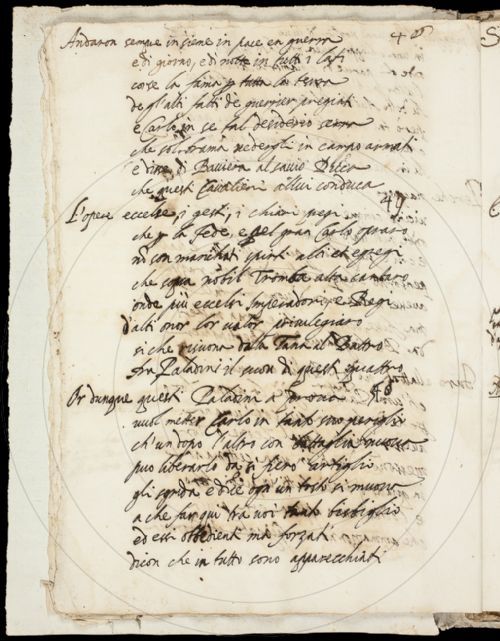 48
Andaron sempre insieme in pace en guerra
e di giorno, e di notte in tutti i lati
corse la fama p tutta la terra
degl'alti fatti de guerrier pregiati
e Carlo in se tal desiderio serra
che sol brama vedergli in campo armati
e disse di Baviera al savio Duca
che questi Cavalieri a lui conduca
49
L'opere eccelse, i gesti, i chiari pregi
che p la fede, e pel gran Carlo opraro
spirti alti et egregi
che nobil Tromba alta cantaro
onde più eccelsi Imperadori, e Regi
d'alti onor lor valor privilegiaro
si che risuona dalla Tana al Battro
fra Paladini il suon di questi quattro
Or dunque questi Paladini a prova
vuol metter Carlo in tanto periglio
ch'un dopo l'altro con battaglia nuova
puo liberarlo da si fiero artiglio
gli sgrida e dice ogn'un tosto si muova
a che far qui tra voi tanto bisbiglio
ed essi obbedienti ma forzati
dicon che in tutto sono apparecchiati